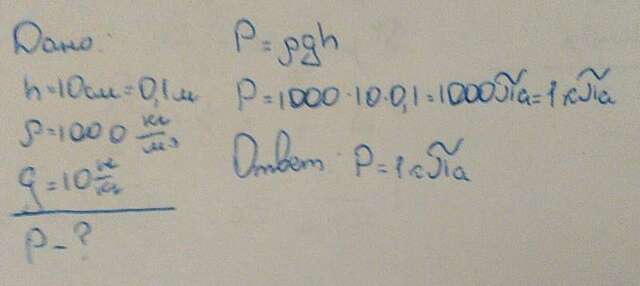 Дано:
h=10см=0,1м
ρ=1000 кг/м³
g=10 Н/кг
p-?
P=ρgh
P=1000·10·0,1=1000Па=1кПа
Ответ: P=1кПа